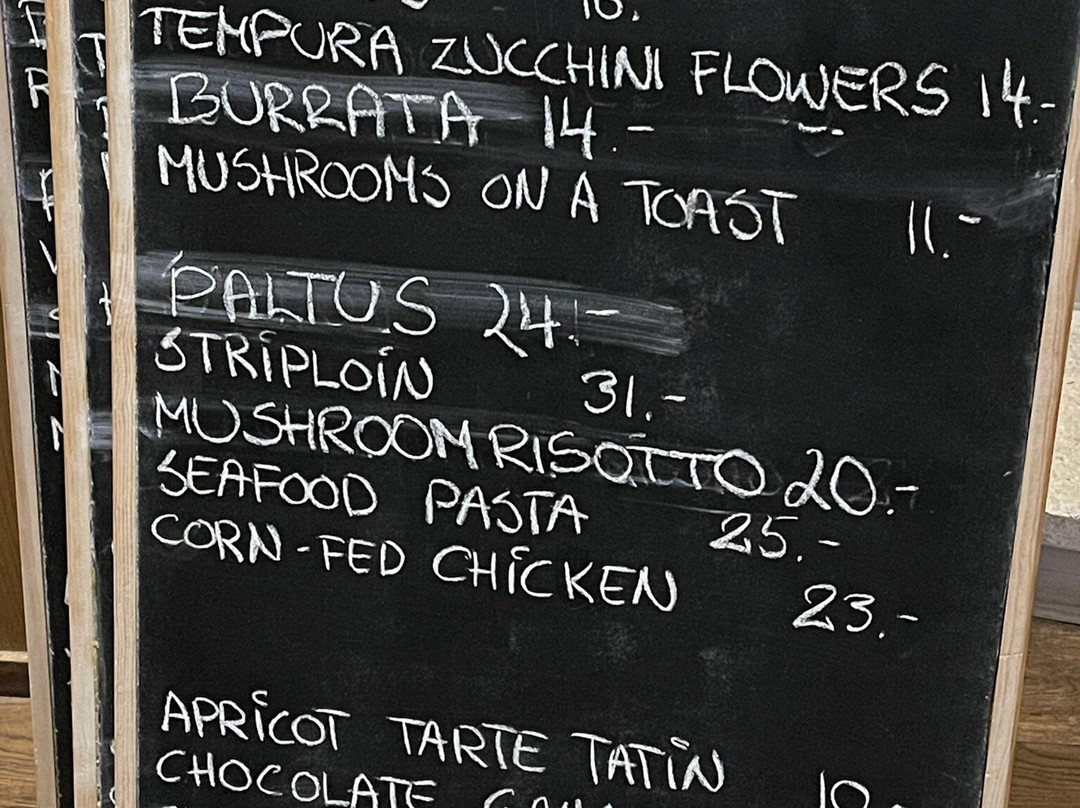 TEMPURA ZUCCHINI FLOWERS 14.-
BURRATA 14.-
MUSHROOMS ON A TOAST 11.-
PALTUS 24.-
STRIPLOIN 31.-
MUSHROOM RISOTTO 20.-
SEAFOOD PASTA 25.-
CORN-FED CHICKEN 23.-
APRICOT TARTE TATIN 10.-
CHOCOLATE